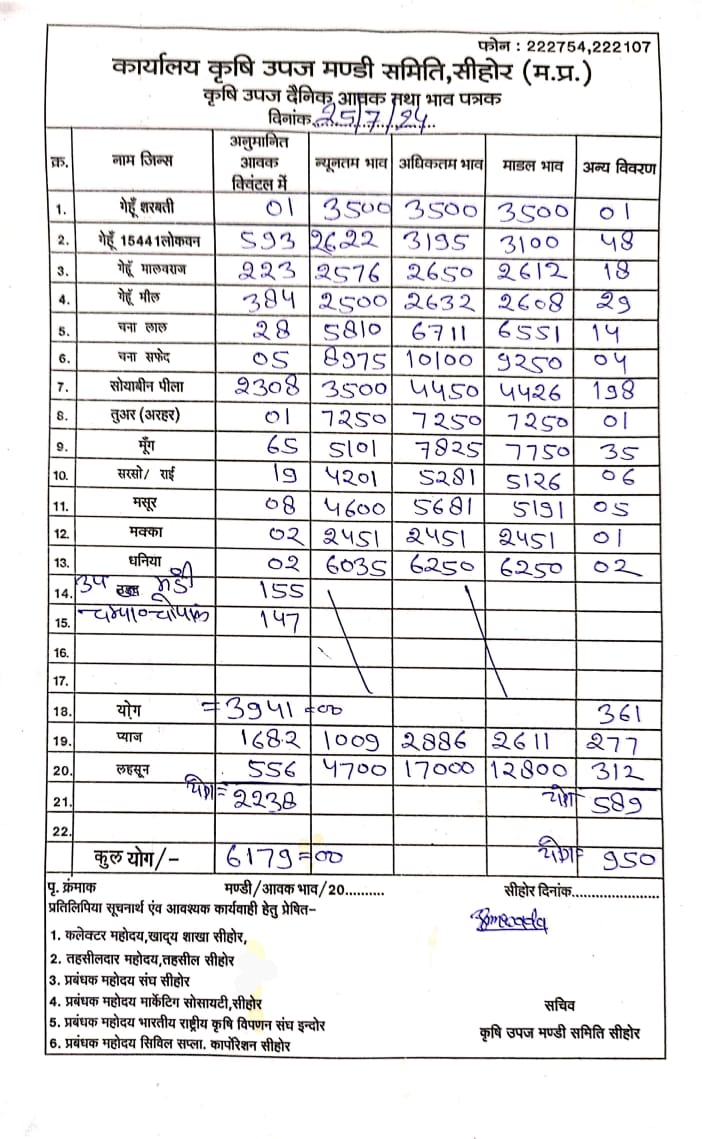 फोन : 222754,222107
कार्यालय कृषि उपज मण्डी समिति,सीहोर (म.प्र.)
कृषि उपज दैनिक आवक तथा भाव पत्रक
दिनांक 25/7/24
क्र. नाम जिन्स अनुमानित आवक क्विंटल में न्यूनतम भाव अधिकतम भाव माडल भाव अन्य विवरण
1. गेहूँ शरबती 01 3500 3500 3500 01
2. गेहूँ 15441लोकवन 593 2622 3195 3100 48
3. गेहूँ मालवराज 223 2576 2650 2612 18
4. गेहूँ मील 384 2500 2632 2608 29
5. चना लाल 28 5810 6711 6551 14
6. चना सफेद 05 8975 10100 9250 04
7. सोयाबीन पीला 2308 3500 4450 4426 198
8. तुअर (अरहर) 01 7250 7250 7250 01
9. मूँग 65 5101 7825 7750 35
10. सरसो/ राई 19 4201 5281 5126 06
11. मसूर 08 4600 5681 5191 05
12. मक्का 02 2451 2451 2451 01
13. धनिया 02 6035 6250 6250 02
14. उप मंडी 155
15. 147
16.
17.
18. योग =3941=00 361
19. प्याज 1682 1009 2886 2611 277
20. लहसून 556 4700 17000 12800 312
21. योग= 2238 योग 589
22.
कुल योग/- 6179=00 योग= 950
पृ. क्रंमाक मण्डी/आवक भाव/20.......... सीहोर दिनांक......................
प्रतिलिपिया सूचनार्थ एंव आवश्यक कार्यवाही हेतु प्रेषित-
1. कलेक्टर महोदय,खाद्य शाखा सीहोर,
2. तहसीलदार महोदय,तहसील सीहोर
3. प्रबंधक महोदय संघ सीहोर
4. प्रबंधक महोदय मार्केटिग सोसायटी,सीहोर
5. प्रबंधक महोदय भारतीय राष्ट्रीय कृषि विपणन संघ इन्दोर
6. प्रबंधक महोदय सिविल सप्ला. कार्पोरेशन सीहोर
सचिव
कृषि उपज मण्डी समिति सीहोर